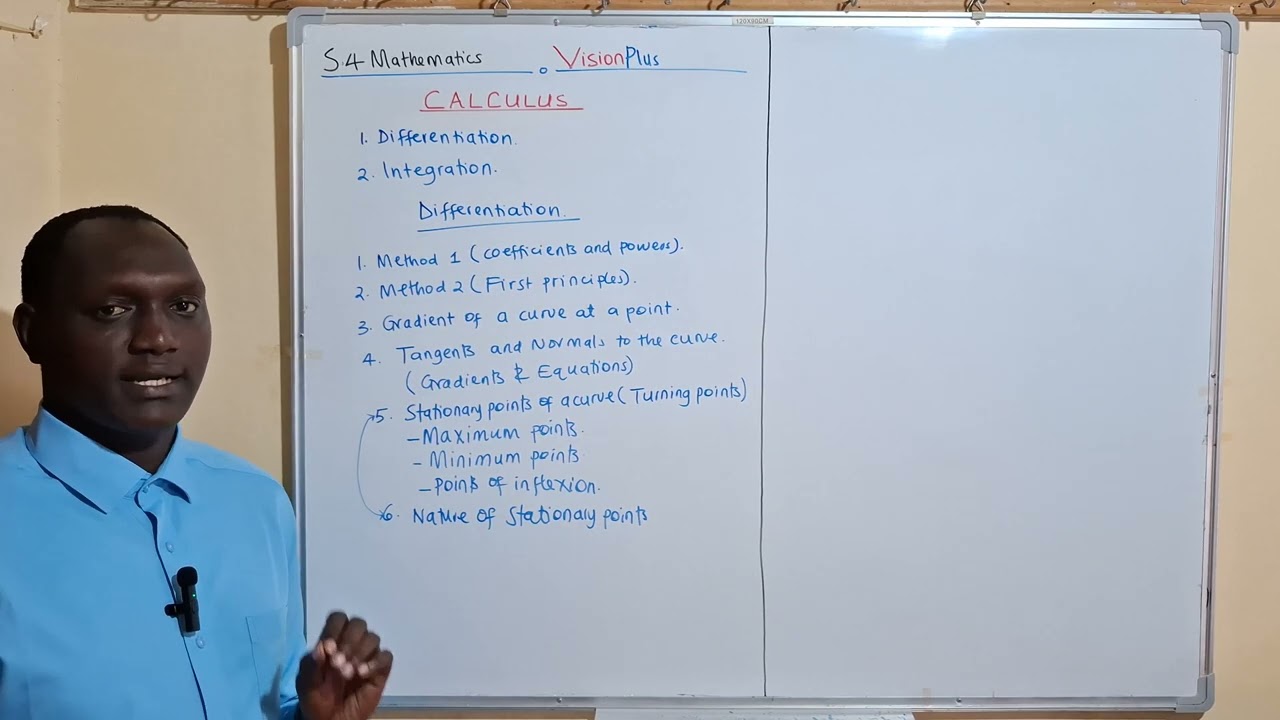 120X90CM
S.4 Mathematics . VisionPlus
CALCULUS
1. Differentiation.
2. Integration.
Differentiation.
1. Method 1 (coefficients and powers).
2. Method 2 (First principles).
3. Gradient of a curve at a point.
4. Tangents and Normals to the curve.
(Gradients & Equations)
5. Stationary points of a curve (Turning points)
- Maximum points.
- Minimum points
- Points of inflexion.
6. Nature of Stationary points